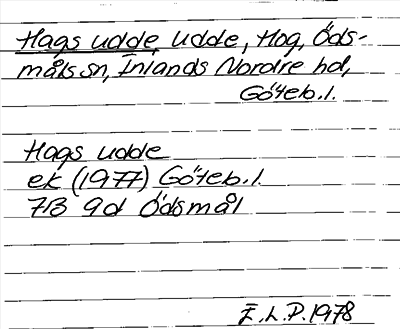 Hags udde, Udde, Hog, Öds-
måls sn, Inlands Nordre hd,
Göteb.l.
Hags udde
ek (1977) Göteb.l.
7B 9d Ödsmål
E.L.P. 1978